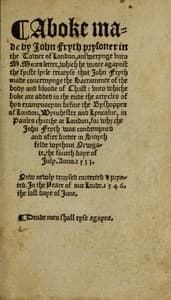 A boke ma-
de by John Fryth prysoner in
the Tower of London, answerynge vnto
M. Mores letter, which he wrote agaynst
the fyrste lytle treatyse that John Fryth
made concernynge the Sacramente of the
body and bloude of Christ: vnto which
boke are added in the ende the artycles of
hys examinacyon before the Byshoppes
of London, Wynchester and Lyncolne, in
Paules churche at London, for which
John Fryth was condempned
and after brente in Smyth
felde without Newga-
te, the fourth daye of
July. Anno. 1533.
Now newly reuysed corrected & pryn-
ted. In the Yeare of our Lorde. 1546.
the last daye of June.
Deade men shall ryse agayne.